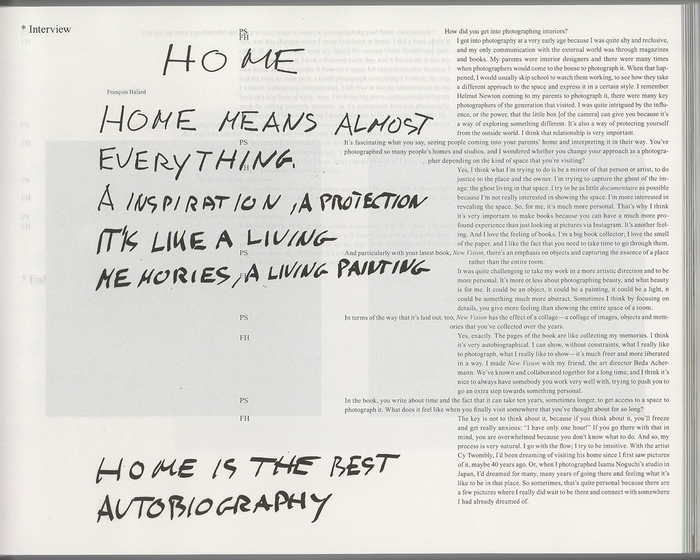 * Interview
HOME
François Halard
HOME MEANS ALMOST
EVERYTHING.
A INSPIRATION, A PROTECTION
IT'S LIKE A LIVING
MEMORIES, A LIVING PAINTING
HOME IS THE BEST
AUTOBIOGRAPHY
PS
How did you get into photographing interiors?
FH
I got into photography at a very early age because I was quite shy and reclusive,
and my only communication with the external world was through magazines
and books. My parents were interior designers and there were many times
when photographers would come to the house to photograph it. When that hap-
pened, I would usually skip school to watch them working, to see how they take
a different approach to the space and express it in a certain style. I remember
Helmut Newton coming to my parents to photograph it, there were many key
photographers of the generation that visited. I was quite intrigued by the influ-
ence, or the power, that the little box [of the camera] can give you because it's
a way of exploring something different. It's also a way of protecting yourself
from the outside world. I think that relationship is very important.
PS
It's fascinating what you say, seeing people coming into your parents' home and interpreting it in their way. You've
photographed so many people's homes and studios, and I wondered whether you change your approach as a photogra-
pher depending on the kind of space that you're visiting?
FH
Yes, I think what I'm trying to do is be a mirror of that person or artist, to do
justice to the place and the owner. I'm trying to capture the ghost of the im-
age: the ghost living in that space. I try to be as little documentaire as possible
because I'm not really interested in showing the space. I'm more interested in
revealing the space. So, for me, it's much more personal. That's why I think
it's very important to make books because you can have a much more pro-
found experience than just looking at pictures via Instagram. It's another feel-
ing. And I love the feeling of books. I'm a big book collector; I love the smell
of the paper, and I like the fact that you need to take time to go through them.
PS
And particularly with your latest book, New Vision, there's an emphasis on objects and capturing the essence of a place
rather than the entire room.
FH
It was quite challenging to take my work in a more artistic direction and to be
more personal. It's more or less about photographing beauty, and what beauty
is for me. It could be an object, it could be a painting, it could be a light, it
could be something much more abstract. Sometimes I think by focusing on
details, you give more feeling than showing the entire space of a room.
PS
In terms of the way that it's laid out, too, New Vision has the effect of a collage—a collage of images, objects and mem-
ories that you've collected over the years.
FH
Yes, exactly. The pages of the book are like collecting my memories. I think
it's very autobiographical. I can show, without constraints, what I really like
to photograph, what I really like to show—it's much freer and more liberated
in a way. I made New Vision with my friend, the art director Beda Acher-
mann. We've known and collaborated together for a long time, and I think it's
nice to always have somebody you work very well with, trying to push you to
go an extra step towards something personal.
PS
In the book, you write about time and the fact that it can take ten years, sometimes longer, to get access to a space to
photograph it. What does it feel like when you finally visit somewhere that you've thought about for so long?
FH
The key is not to think about it, because if you think about it, you'll freeze
and get really anxious: "I have only one hour!" If you go there with that in
mind, you are overwhelmed because you don't know what to do. And so, my
process is very natural. I go with the flow; I try to be intuitive. With the artist
Cy Twombly, I'd been dreaming of visiting his home since I first saw pictures
of it, maybe 40 years ago. Or, when I photographed Isamu Noguchi's studio in
Japan, I'd dreamed for many, many years of going there and feeling what it's
like to be in that place. So sometimes, that's quite personal because there are
a few pictures where I really did wait to be there and connect with somewhere
I had already dreamed of.